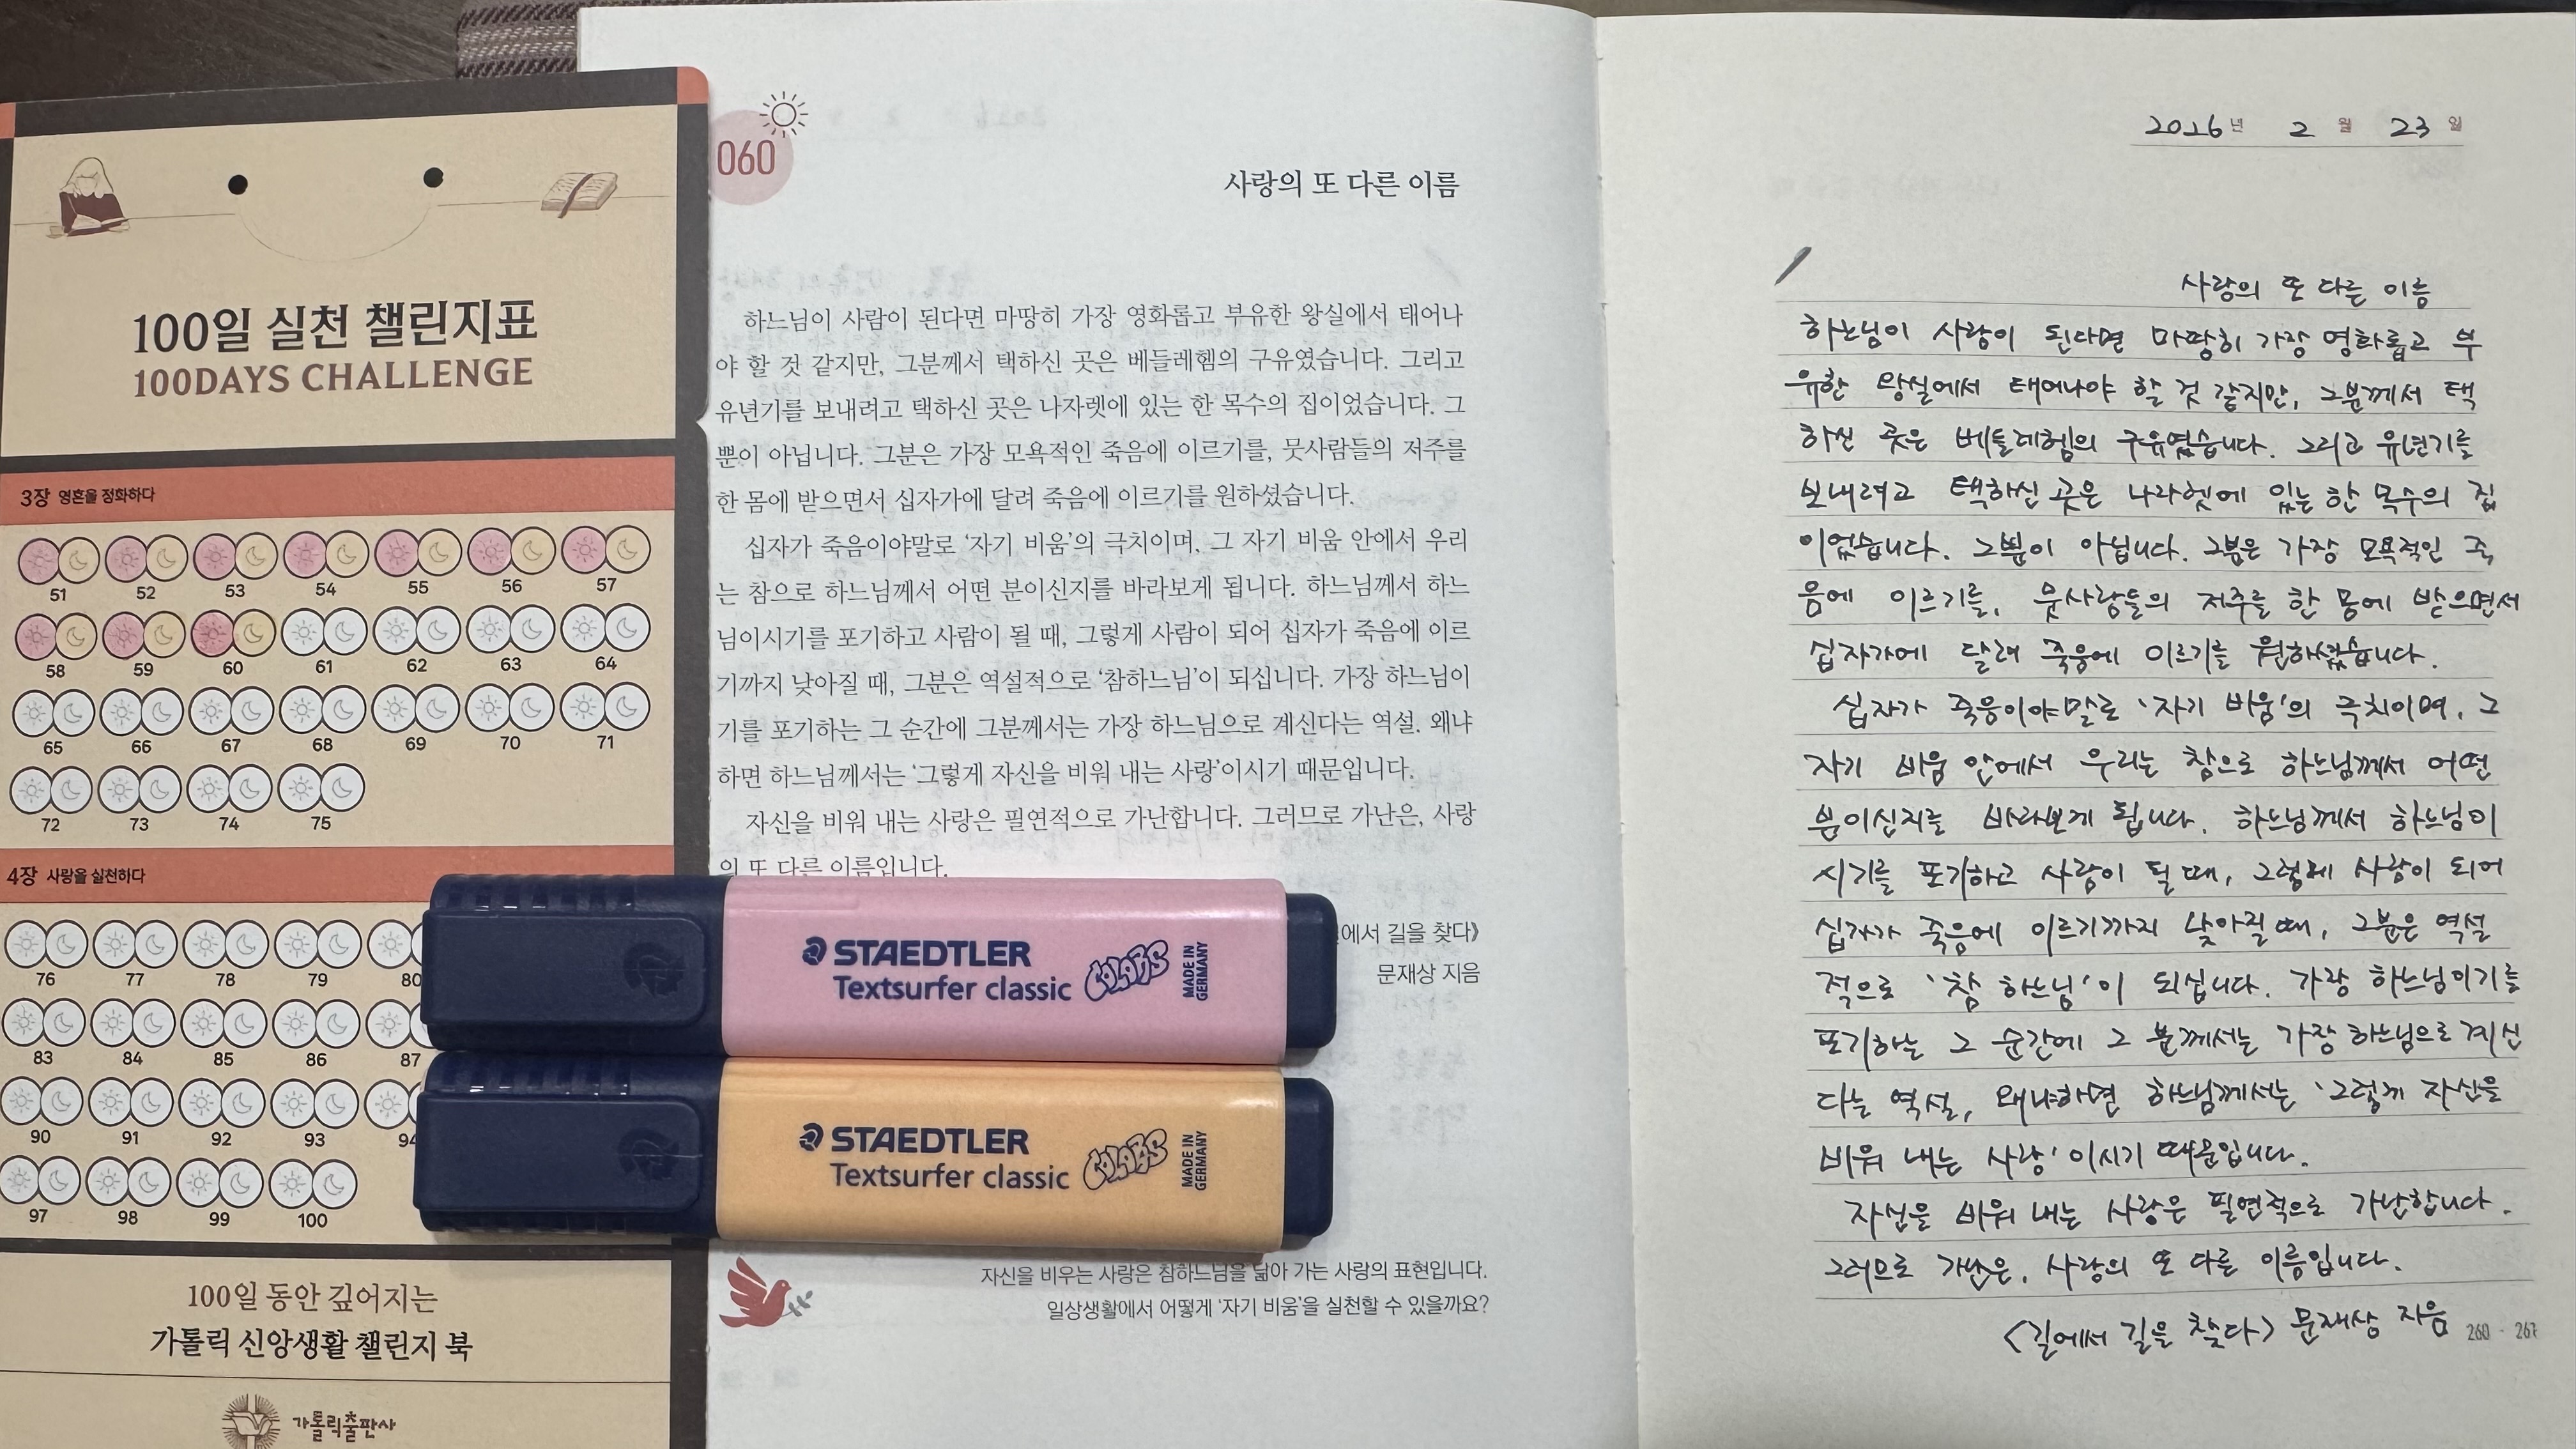 100일 실천 챌린지표
100DAYS CHALLENGE
3장 영혼을 정화하다
51 52 53 54 55 56 57
58 59 60 61 62 63 64
65 66 67 68 69 70 71
72 73 74 75
4장 사랑을 실천하다
76 77 78 79 80
83 84 85 86 87
90 91 92 93 94
97 98 99 100
100일 동안 깊어지는
가톨릭 신앙생활 챌린지 북
가톨릭출판사
060
사랑의 또 다른 이름
하느님이 사람이 된다면 마땅히 가장 영화롭고 부유한 왕실에서 태어나
야 할 것 같지만, 그분께서 택하신 곳은 베들레헴의 구유였습니다. 그리고
유년기를 보내려고 택하신 곳은 나자렛에 있는 한 목수의 집이었습니다. 그
뿐이 아닙니다. 그분은 가장 모욕적인 죽음에 이르기를, 뭇사람들의 저주를
한 몸에 받으면서 십자가에 달려 죽음에 이르기를 원하셨습니다.
십자가 죽음이야말로 ‘자기 비움’의 극치이며, 그 자기 비움 안에서 우리
는 참으로 하느님께서 어떤 분이신지를 바라보게 됩니다. 하느님께서 하느
님이시기를 포기하고 사람이 될 때, 그렇게 사람이 되어 십자가 죽음에 이르
기까지 낮아질 때, 그분은 역설적으로 ‘참하느님’이 되십니다. 가장 하느님이
기를 포기하는 그 순간에 그분께서는 가장 하느님으로 계신다는 역설. 왜냐
하면 하느님께서는 ‘그렇게 자신을 비워 내는 사랑’이시기 때문입니다.
자신을 비워 내는 사랑은 필연적으로 가난합니다. 그러므로 가난은, 사랑
의 또 다른 이름입니다.
에서 길을 찾다》
문재상 지음
STAEDTLER
Textsurfer classic COLORS MADE IN GERMANY
STAEDTLER
Textsurfer classic COLORS MADE IN GERMANY
자신을 비우는 사랑은 참하느님을 닮아 가는 사랑의 표현입니다.
일상생활에서 어떻게 ‘자기 비움’을 실천할 수 있을까요?
2026년 2월 23일
사랑의 또 다른 이름
하느님이 사람이 된다면 마땅히 가장 영화롭고 부
유한 왕실에서 태어나야 할 것 같지만, 그분께서 택
하신 곳은 베들레헴의 구유였습니다. 그리고 유년기를
보내려고 택하신 곳은 나자렛에 있는 한 목수의 집
이었습니다. 그뿐이 아닙니다. 그분은 가장 모욕적인 죽
음에 이르기를, 뭇사람들의 저주를 한 몸에 받으면서
십자가에 달려 죽음에 이르기를 원하셨습니다.
십자가 죽음이야말로 '자기 비움'의 극치이며, 그
자기 비움 안에서 우리는 참으로 하느님께서 어떤
분이신지를 바라보게 됩니다. 하느님께서 하느님이
시기를 포기하고 사람이 될 때, 그렇게 사람이 되어
십자가 죽음에 이르기까지 낮아질 때, 그분은 역설
적으로 '참 하느님'이 되십니다. 가장 하느님이기를
포기하는 그 순간에 그 분께서는 가장 하느님으로 계신
다는 역설, 왜냐하면 하느님께서는 '그렇게 자신을
비워 내는 사랑'이시기 때문입니다.
자신을 비워 내는 사랑은 필연적으로 가난합니다.
그러므로 가난은, 사랑의 또 다른 이름입니다.
<길에서 길을 찾다> 문재상 지음
260 - 267